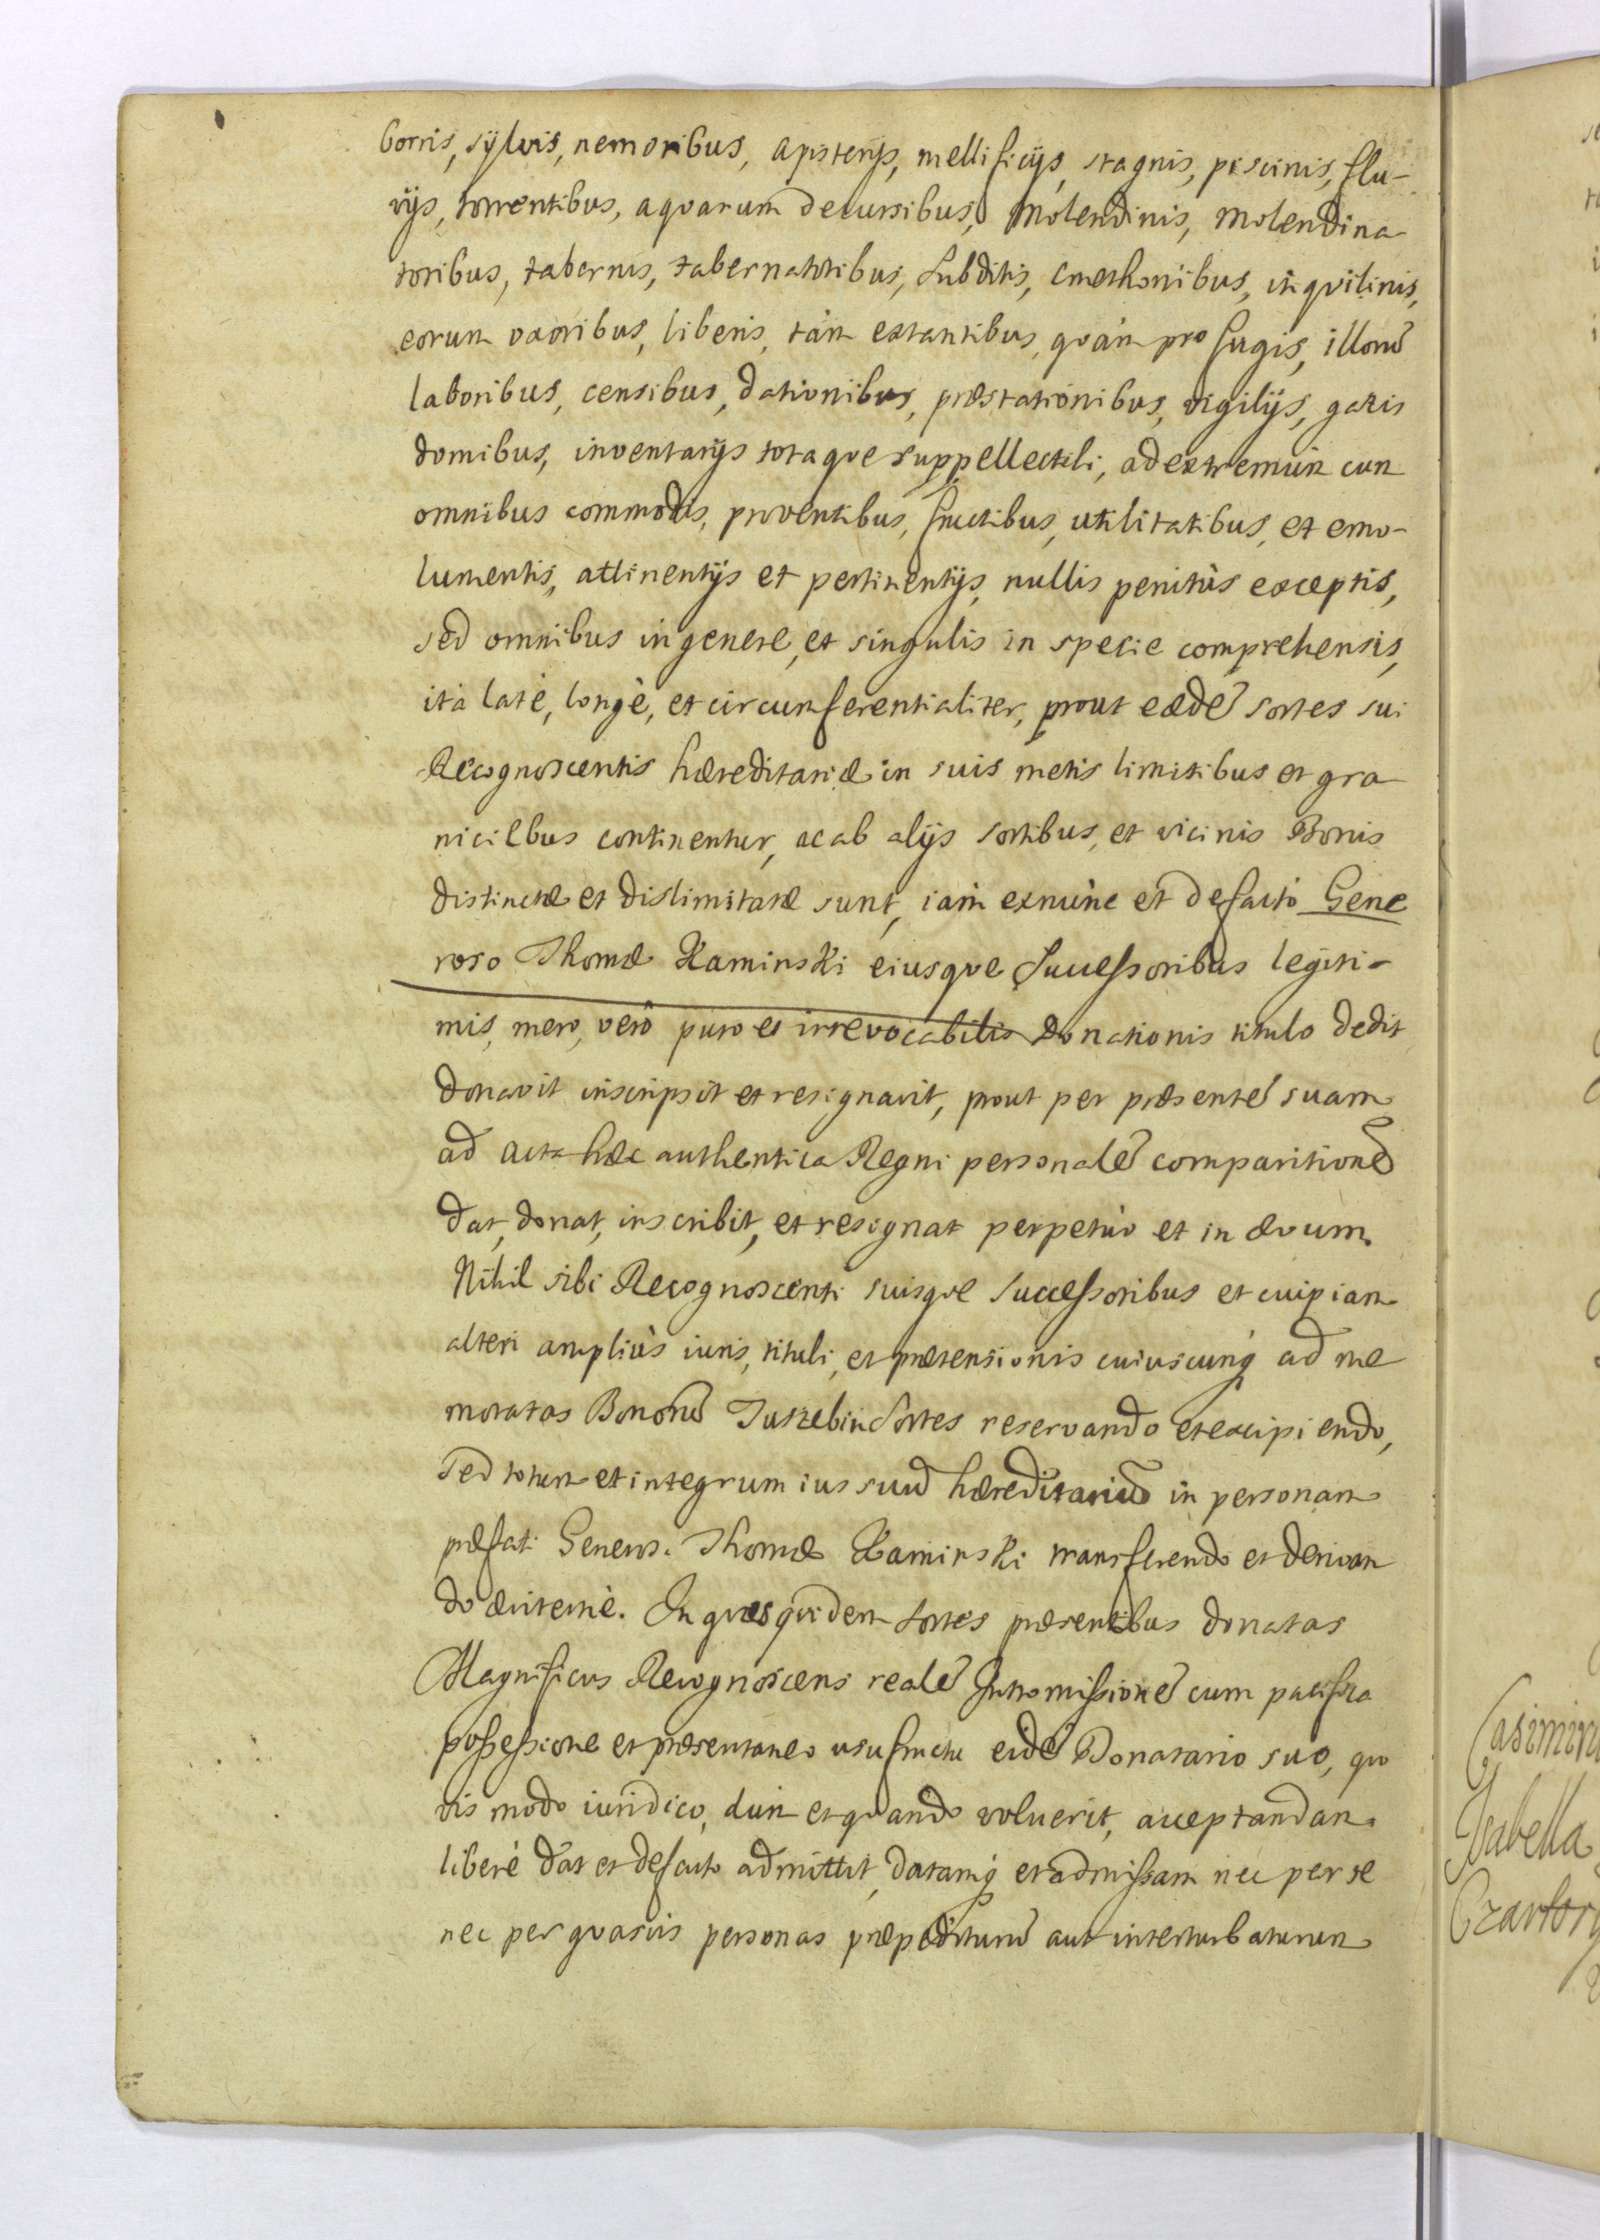 borris, sylvis, nemoribus, apisterijs, mellificijs, stagnis, piscinis, flu-
vijs, torrentibus, aquarum decursibus, molendinis, molendina
toribus, tabernis, tabernatoribus, subditis, cmethonibus, inquilinis,
eorum uxoribus, liberis, tàm extantibus, quàm profugis, illorū
laboribus, censibus, dationibus, præstationibus, vigilijs, gazis
domibus, inventarijs totaque suppellectili, ad extremùm cum
omnibus commodis, proventibus, fructibus, utilitatibus, et emo-
lumentis, attinentijs et pertinentijs, nullis penitùs exceptis,
sed omnibus in genere, et singulis in specie comprehensis,
ità latè, longè, et circumferentialiter, prout eædē sortes sui
Recognoscentis hæreditariæ in suis metis limitibus et gra
niciebus continentur, ac ab alijs sortibus, et vicinis Bonis
distinctæ et dislimitatæ sunt, iàm exnùnc et defactò Gene
roso Thomæ Kaminski eiusque Successoribus legiti-
mis, mero, verò puro et irrevocabilis Donationis titulo dedit
donavit inscripsit et resignavit, prout per præsentē suam
ad acta hæc authentica Regni personalē comparitionē
dat, donat, inscribit, et resignat perpetùo et in ævum.
Nihil sibi Recognoscenti suisque successoribus et cuipiam
alteri ampliùs iuris, tituli, et prætensionis cuiuscunq̨ ad me
moratas Bonorū Jastzebin Sortes reservando et excipiendo,
Sed totum et integrum ius suū hæreditariū in personam
præfati Generosi Thomæ Kaminski transferendo et derivan
do æviternè. In quas quidem sortes præsentibus donatas
Magnificus Recognoscens realē Intromissionē cum pacifica
possessione et præsentaneo usufructu eidē Donatario suo, quo
vis modo iuridico, dum et quando voluerit, acceptandam
liberè dat et defacto admittit, datamq̨ et admissam nec per se
nec per quasvis personas præpediturū aut interturbaturum
Casimiru
Isabella
Czartory